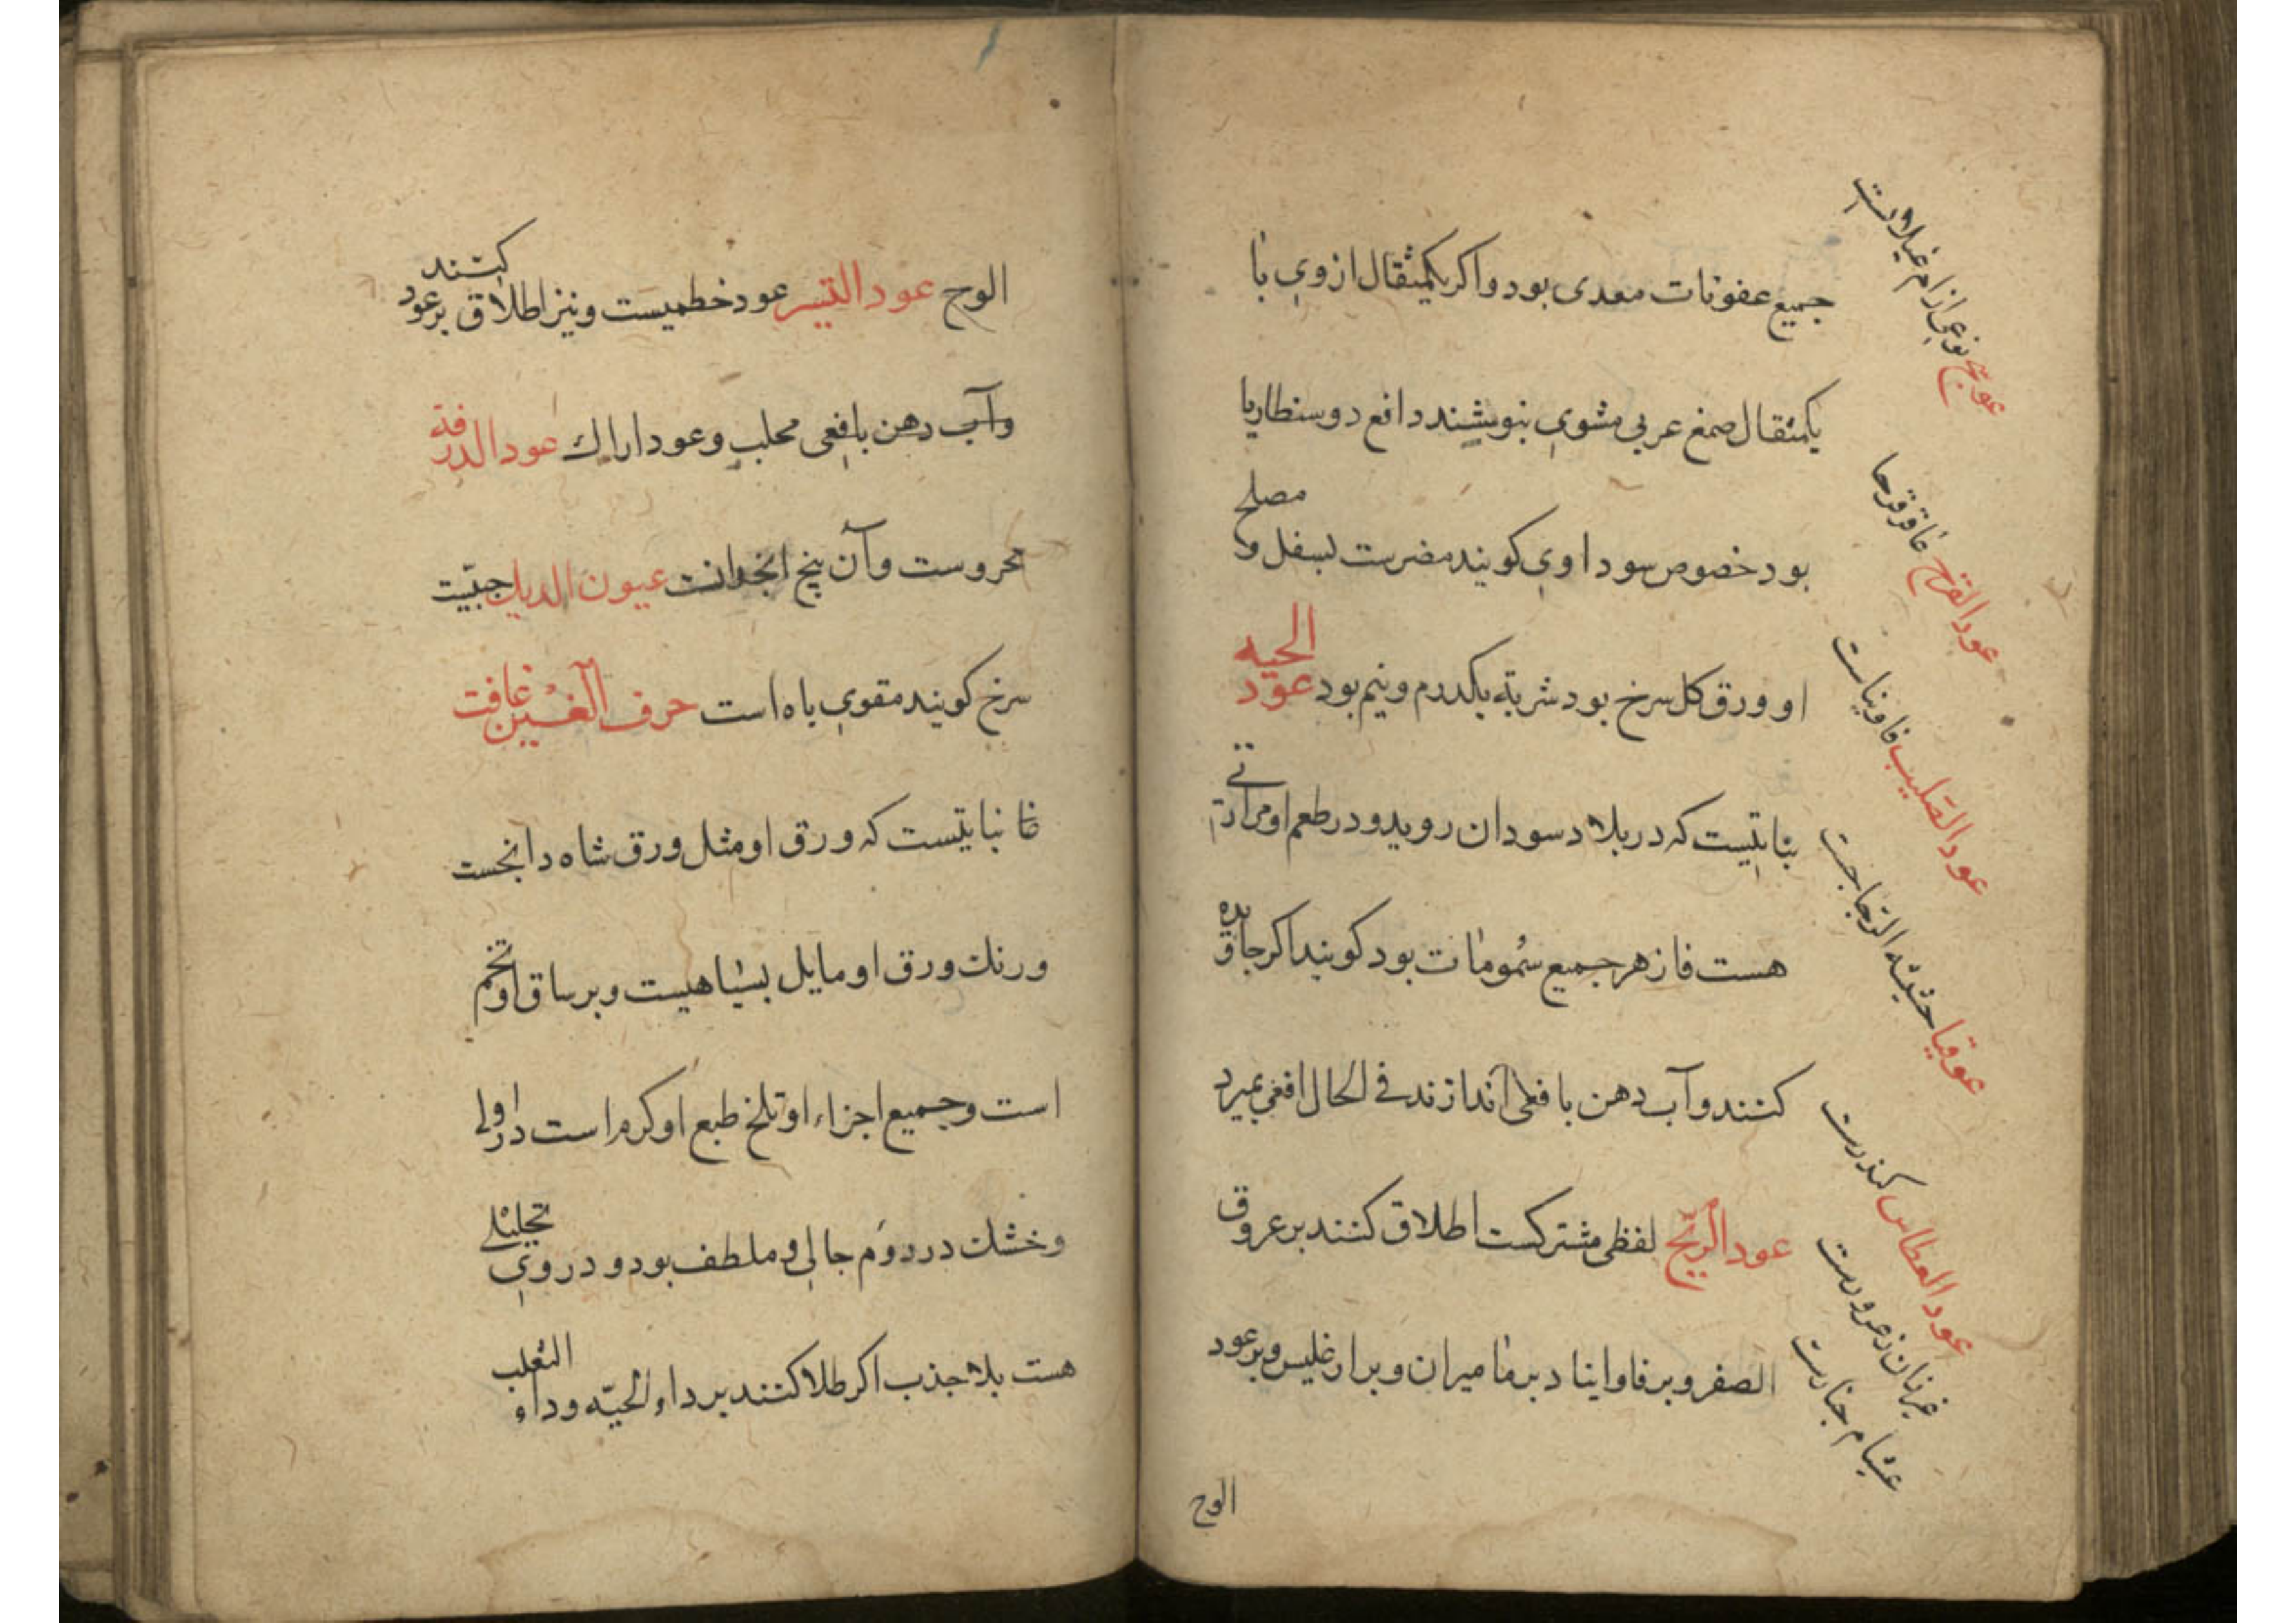 جميع عفونات معدی بود واکر یکمثقال ازوی با
یکمثقال صمغ عربی مشوی بنوشند دافع دوسنطاریا
بود خصوص سوداوی کویند مضرست بسفل و مصلح
او ورق کل سرخ بود شربته یکدرم ونیم بود عود الحیه
نباتیست که در بلاد سودان روید ودر طعم او مرارتی
هست فازهر جمیع سمومات بود کویند اکر جاویده
کنند وآب دهن بافعی اندازند فی الحال افعی بمیرد
عود الریح لفظی مشترکست اطلاق کنند بر عروق
الصفر وبر فاواینا و بر مامیران و بر ارغلیس وبر عود
الوج
عوسج نوعی از ام غیلانست
عود القرح عاقرقرحا
عود الصلیب فاویناست
عوقیا حشیشه الزجاجست
عود العطاس کندرست
عزبان زعرورست
عشام جنارست
الوج عود التیسر عود خطمیست ونیز اطلاق بر عود کنند
وآب دهن بافعی محلب وعود اراک عود الدرقه
محروست وآن بیخ انجدانست عیون الدیک حبیت
سرخ کویند مقوی باه است حرف الغین غافت
غا نباتیست که ورق او مثل ورق شاه دانجست
ورنک ورق او مایل بسیاهیست وبر ساق او تخم
است وجمیع اجزاء او تلخ طبع او کرم است در اولی
وخشک در دوم جالی و ملطف بود و در وی تحلیلی
هست بلا جذب اکر طلا کنند بر داء الحیّه وداء الثعلب